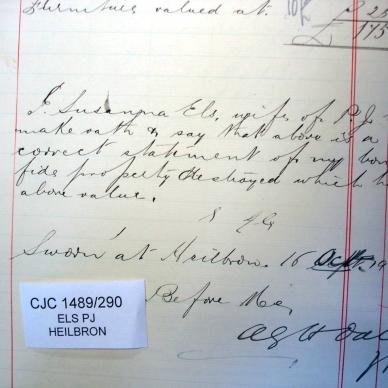 Furniture valued at.
I, Susanna Els, wife of P.J.
make oath & say that above is a
correct statement of my bona
fide property destroyed which
above value.
Sworn at Heilbron. 16
Before Me,
CJC 1489/290
ELS PJ
HEILBRON